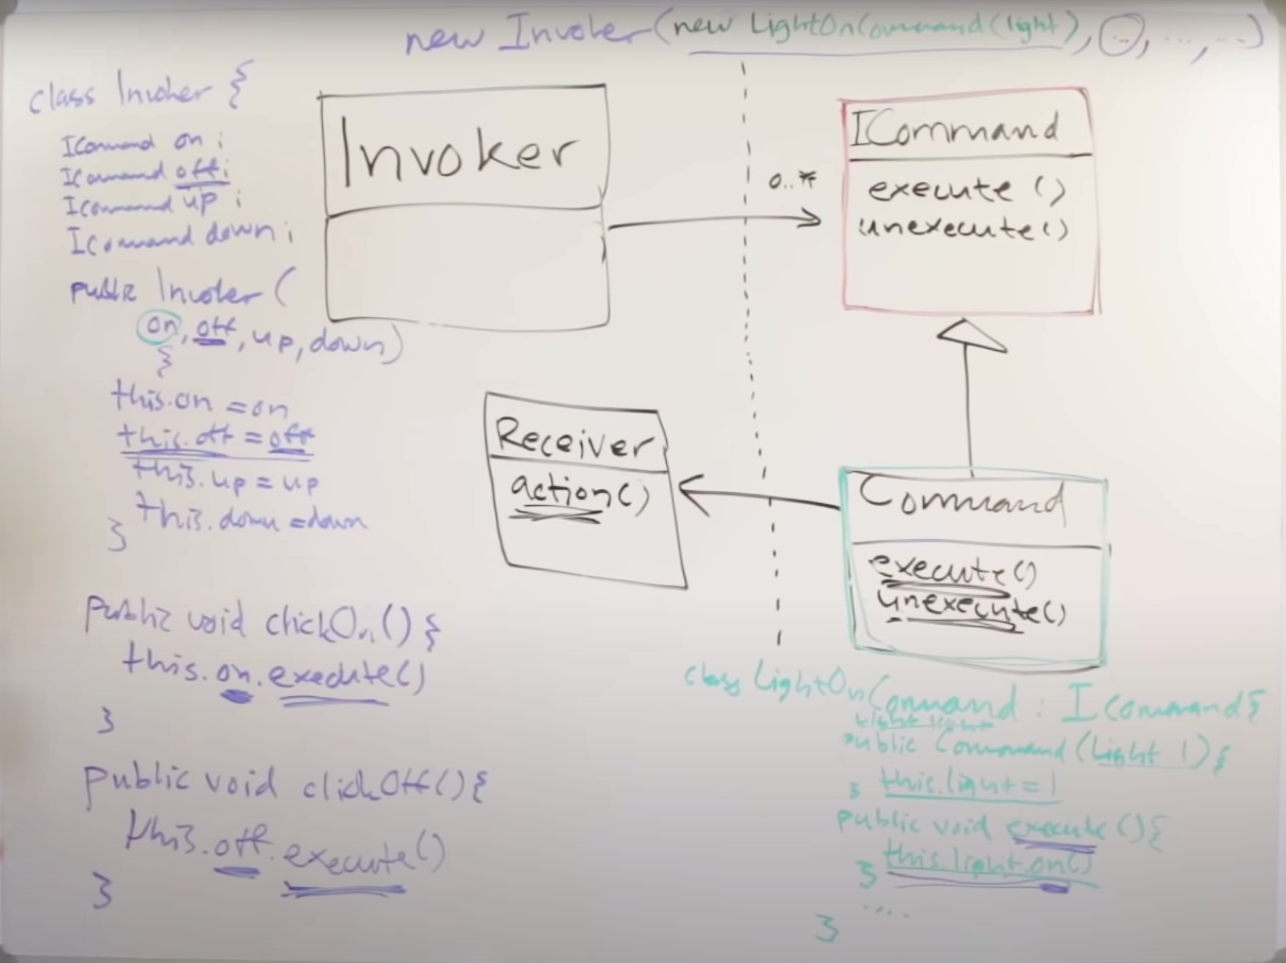 new Invoker(new LightOnCommand(light), ..., ..., ...)
class Invoker {
ICommand on;
ICommand off;
ICommand up;
ICommand down;
public Invoker (
on, off, up, down)
{
this.on = on
this.off = off
this.up = up
this.down = down
}
public void clickOn() {
this.on.execute()
}
public void clickOff() {
this.off.execute()
}
Invoker
0..*
ICommand
execute ()
unexecute()
Receiver
action()
Command
execute()
unexecute()
class LightOnCommand : ICommand {
Light light
public Command (Light l) {
this.light = l
}
public void execute () {
this.light.on()
}
....
}